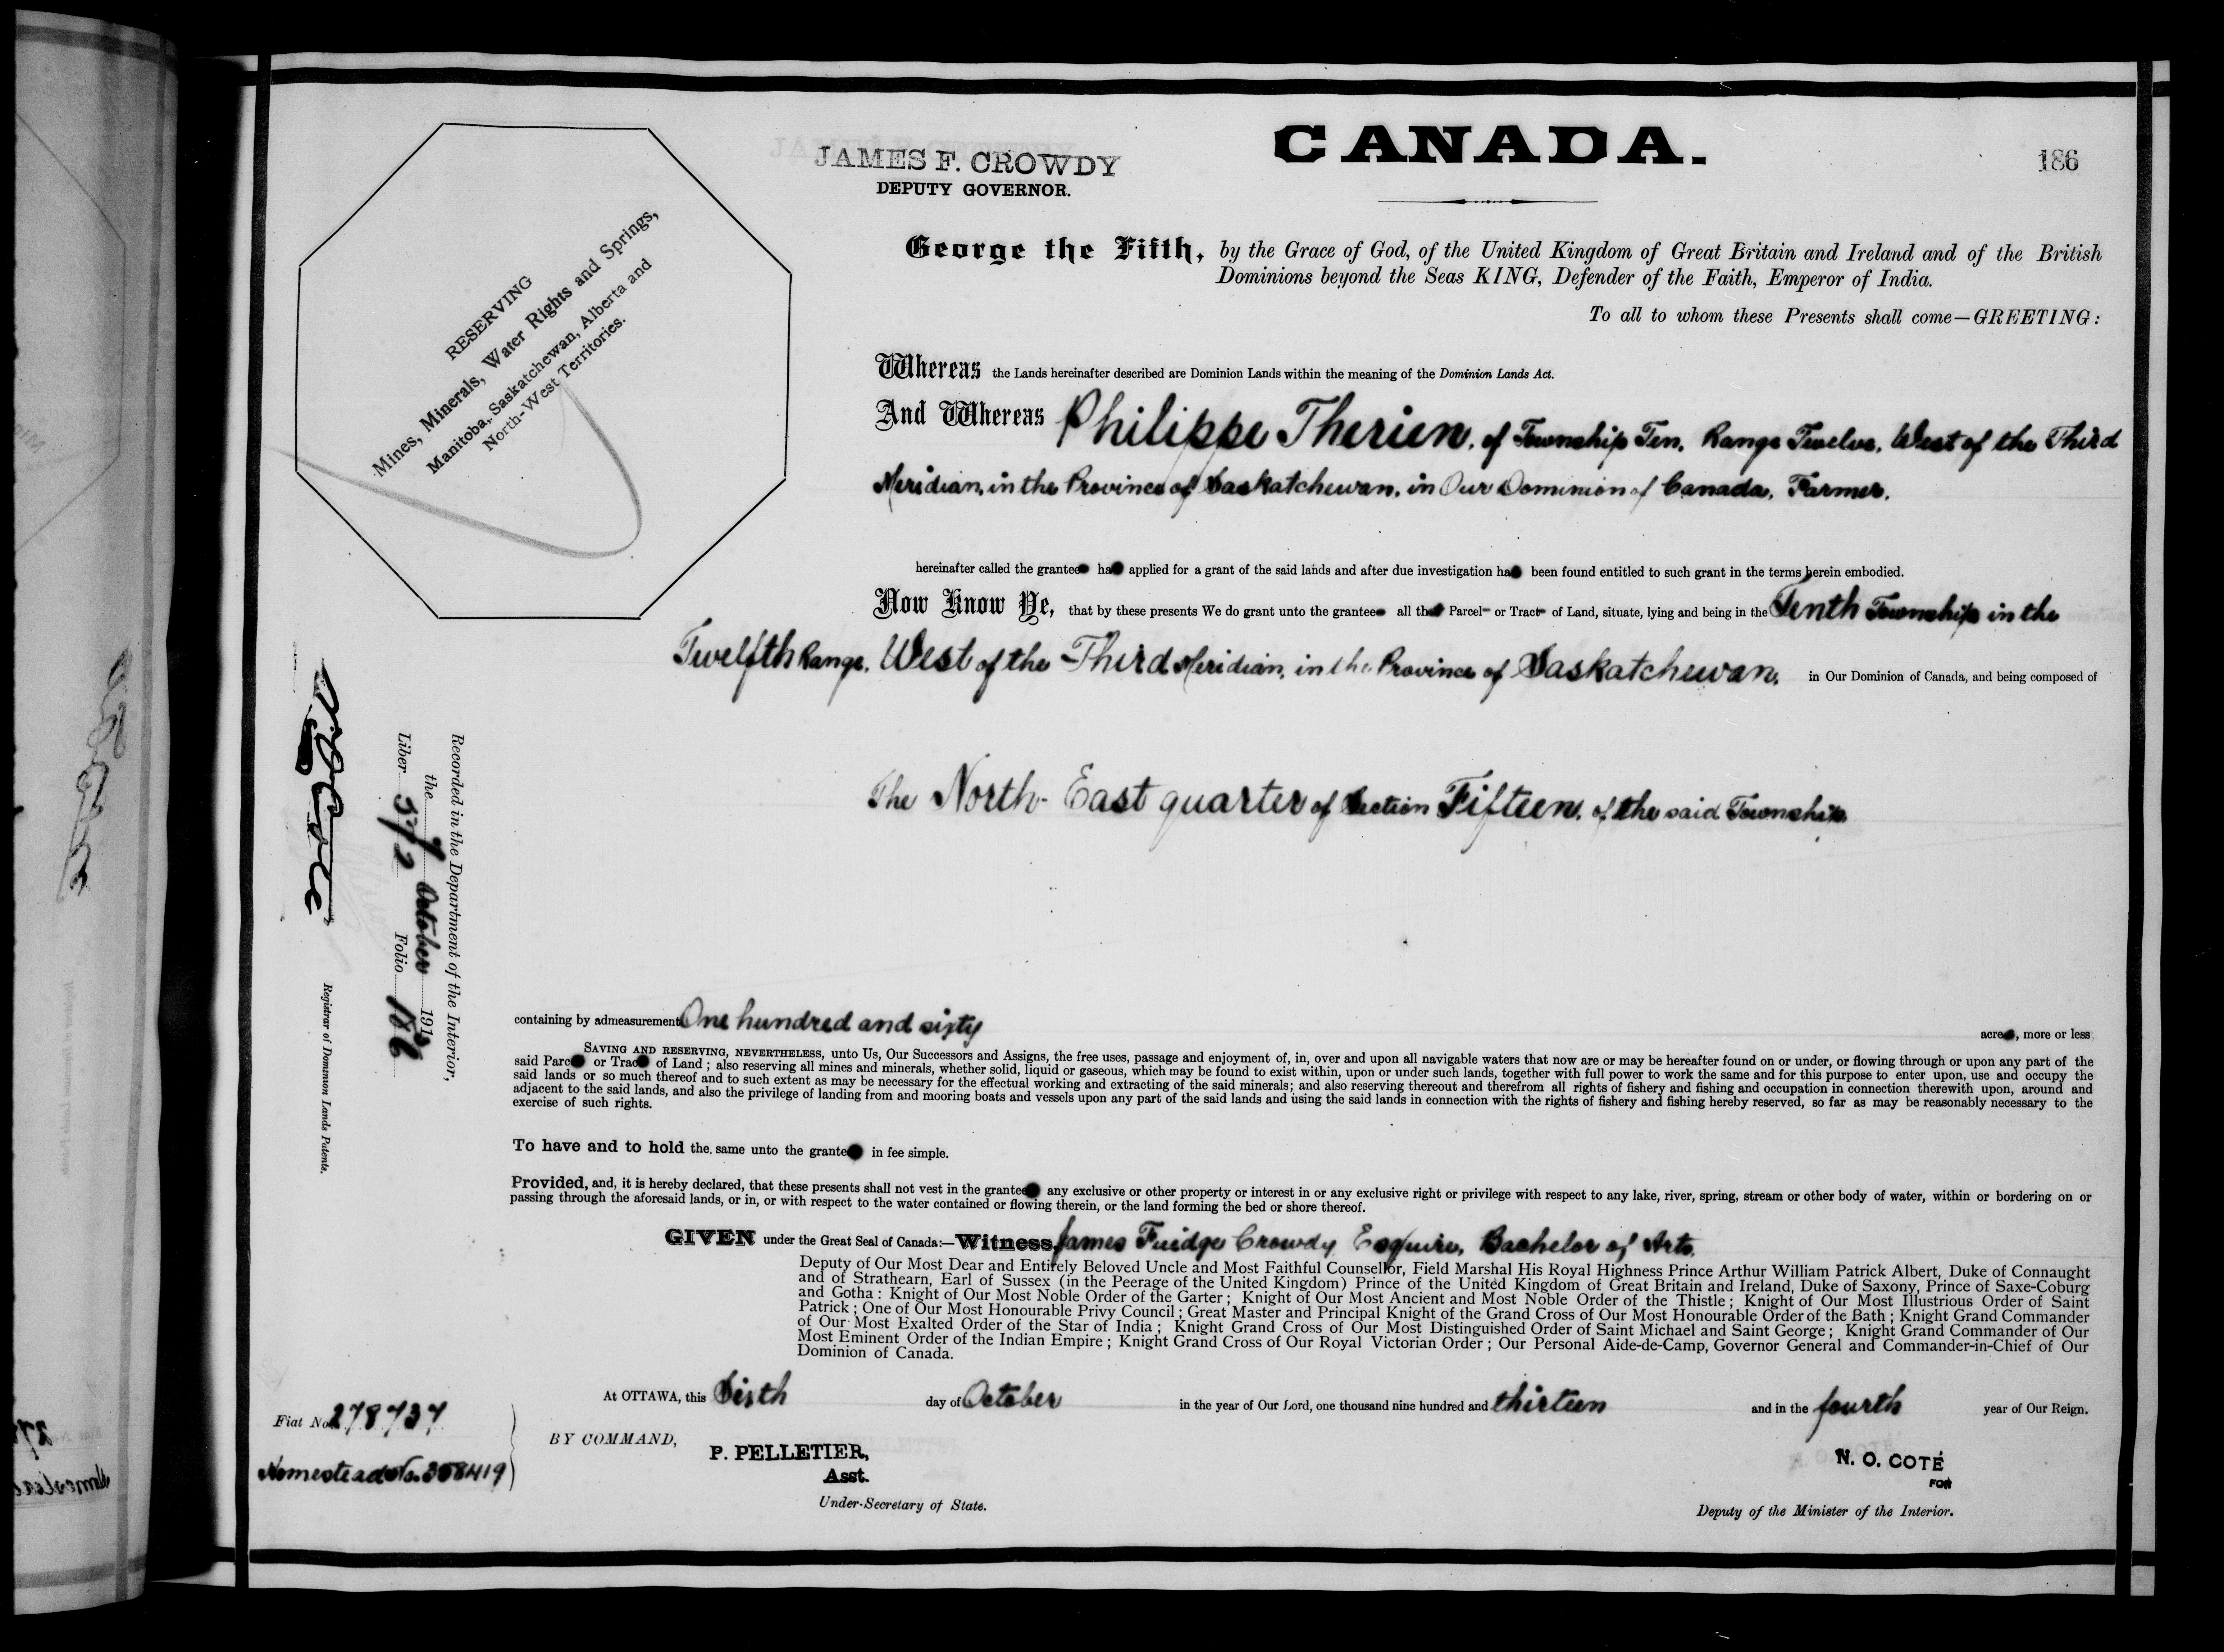 CANADA.
186
JAMES F. CROWDY
DEPUTY GOVERNOR.
RESERVING
Mines, Minerals, Water Rights and Springs,
Manitoba, Saskatchewan, Alberta and
North-West Territories.
George the Fifth, by the Grace of God, of the United Kingdom of Great Britain and Ireland and of the British
Dominions beyond the Seas KING, Defender of the Faith, Emperor of India.
To all to whom these Presents shall come—GREETING:
Whereas the Lands hereinafter described are Dominion Lands within the meaning of the Dominion Lands Act.
And Whereas Philippe Therien, of Township Ten, Range Twelve, West of the Third
Meridian, in the Province of Saskatchewan, in Our Dominion of Canada, Farmer,
hereinafter called the grantee ha applied for a grant of the said lands and after due investigation ha been found entitled to such grant in the terms herein embodied.
Now Know Ye, that by these presents We do grant unto the grantee all that Parcel or Tract of Land, situate, lying and being in the Tenth Township in the
Twelfth Range, West of the Third Meridian, in the Province of Saskatchewan, in Our Dominion of Canada, and being composed of
The North-East quarter of Section Fifteen, of the said Township
containing by admeasurement One hundred and sixty acres, more or less
SAVING AND RESERVING, NEVERTHELESS, unto Us, Our Successors and Assigns, the free uses, passage and enjoyment of, in, over and upon all navigable waters that now are or may be hereafter found on or under, or flowing through or upon any part of the
said Parcel or Tract of Land; also reserving all mines and minerals, whether solid, liquid or gaseous, which may be found to exist within, upon or under such lands, together with full power to work the same and for this purpose to enter upon, use and occupy the
said lands or so much thereof and to such extent as may be necessary for the effectual working and extracting of the said minerals; and also reserving thereout and therefrom all rights of fishery and fishing and occupation in connection therewith upon, around and
adjacent to the said lands, and also the privilege of landing from and mooring boats and vessels upon any part of the said lands and using the said lands in connection with the rights of fishery and fishing hereby reserved, so far as may be reasonably necessary to the
exercise of such rights.
To have and to hold the same unto the grantee in fee simple.
Provided, and, it is hereby declared, that these presents shall not vest in the grantee any exclusive or other property or interest in or any exclusive right or privilege with respect to any lake, river, spring, stream or other body of water, within or bordering on or
passing through the aforesaid lands, or in, or with respect to the water contained or flowing therein, or the land forming the bed or shore thereof.
GIVEN under the Great Seal of Canada:—Witness, James Fuidge Crowdy Esquire, Bachelor of Arts,
Deputy of Our Most Dear and Entirely Beloved Uncle and Most Faithful Counsellor, Field Marshal His Royal Highness Prince Arthur William Patrick Albert, Duke of Connaught
and of Strathearn, Earl of Sussex (in the Peerage of the United Kingdom) Prince of the United Kingdom of Great Britain and Ireland, Duke of Saxony, Prince of Saxe-Coburg
and Gotha: Knight of Our Most Noble Order of the Garter; Knight of Our Most Ancient and Most Noble Order of the Thistle; Knight of Our Most Illustrious Order of Saint
Patrick; One of Our Most Honourable Privy Council; Great Master and Principal Knight of the Grand Cross of Our Most Honourable Order of the Bath; Knight Grand Commander
of Our Most Exalted Order of the Star of India; Knight Grand Cross of Our Most Distinguished Order of Saint Michael and Saint George; Knight Grand Commander of Our
Most Eminent Order of the Indian Empire; Knight Grand Cross of Our Royal Victorian Order; Our Personal Aide-de-Camp, Governor General and Commander-in-Chief of Our
Dominion of Canada.
At OTTAWA, this Sixth day of October in the year of Our Lord, one thousand nine hundred and thirteen and in the fourth year of Our Reign.
BY COMMAND,
P. PELLETIER,
Asst.
Under-Secretary of State.
N. O. COTÉ
FOR
Deputy of the Minister of the Interior.
Fiat No. 278737
Homestead No. 358419
Recorded in the Department of the Interior,
the 9 October 1913
Liber 572 Folio 186
N. O. Coté
Registrar of Dominion Lands Patents.